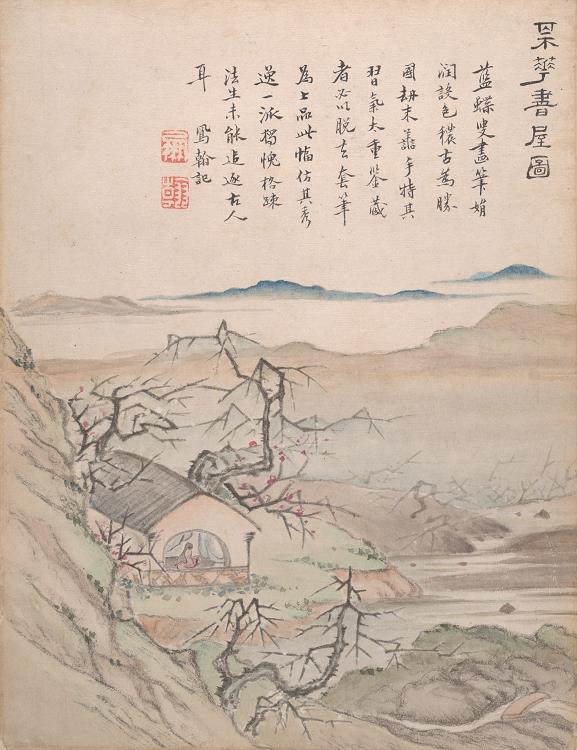 呆華書屋圖
藍蝶叟畫筆娟
潤設色穠古為勝
國劫末手特其
習氣太重鑒藏
者必以脫去套筆
為上品此幅仿其秀
逸一派獨愧格疎
法生未能追逐古人
耳 鳳翰記